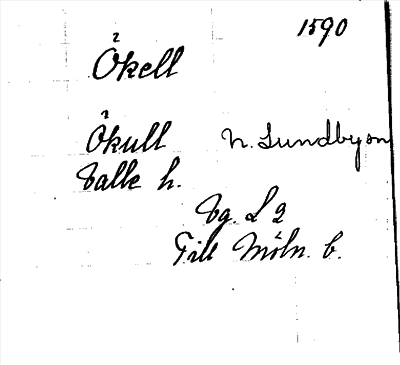 1590
Ökell
Ökull N. Lundbyån
Valle h.
Vg. L 2
Till Möln. b.